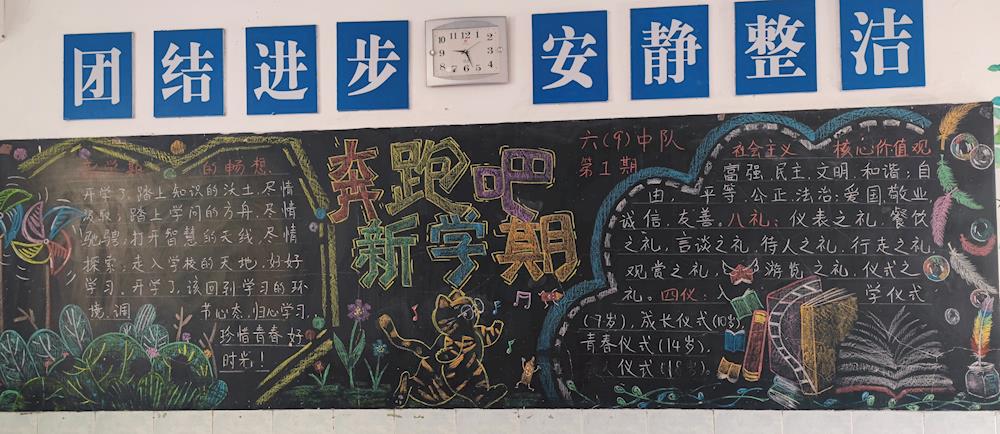 团结进步
安静整洁
奔跑吧
新学期
六(9)中队
第1期
的畅想
开学了,踏上知识的沃土,尽情
踏上学问的方舟,尽情
驰骋,打开智慧的天线,尽情
探索;走入学校的天地,好好
学习。开学了,该回到学习的环
境,调 书心态,归心学习,
珍惜青春好
时光!
社会主义 核心价值观
富强、民主、文明、和谐;自
由, 平等、公正、法治;爱国、敬业
诚信、友善。八礼:仪表之礼,餐饮
之礼,言谈之礼,待人之礼,行走之礼,
观赏之礼, 游览之礼,仪式之
礼。四仪:入 学仪式
(7岁),成长仪式(10岁)
青春仪式(14岁),
仪式(18岁)。